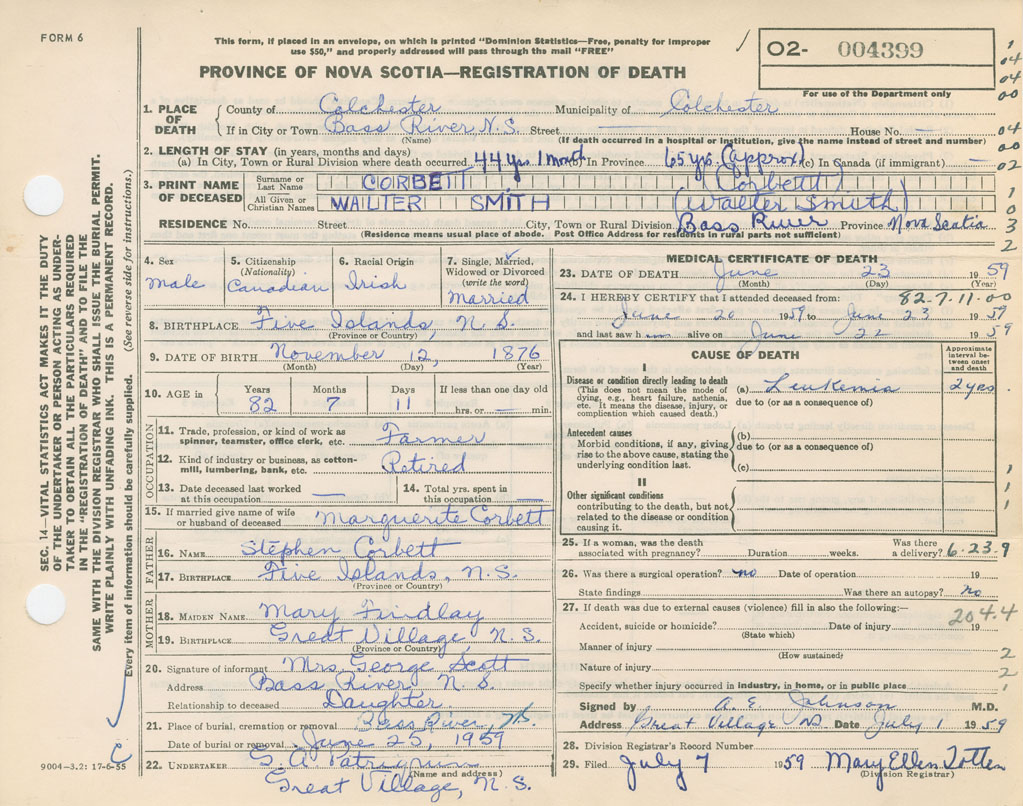 FORM 6
This form, if placed in an envelope, on which is printed "Dominion Statistics—Free, penalty for improper
use $50," and properly addressed will pass through the mail "FREE"
PROVINCE OF NOVA SCOTIA—REGISTRATION OF DEATH
O2- 004399
For use of the Department only
1. PLACE OF DEATH
County of Colchester Municipality of Colchester
If in City or Town Bass River N.S. Street — House No. —
(Name) (If death occurred in a hospital or institution, give the name instead of street and number)
2. LENGTH OF STAY (in years, months and days)
(a) In City, Town or Rural Division where death occurred 44 yrs. 1 month In Province 65 yrs. (Approx) (c) In Canada (if immigrant) —
3. PRINT NAME OF DECEASED
Surname or Last Name CORBETT (Corbett)
All Given or Christian Names WALTER SMITH (Walter Smith)
RESIDENCE No. Street City, Town or Rural Division Bass River Province Nova Scotia
(Residence means usual place of abode. Post Office Address for residents in rural parts not sufficient)
4. Sex
male
5. Citizenship
(Nationality)
Canadian
6. Racial Origin
Irish
7. Single, Married, Widowed or Divorced
(write the word)
Married
8. BIRTHPLACE Five Islands, N.S.
(Province or Country)
9. DATE OF BIRTH November 12, 1876
(Month) (Day) (Year)
10. AGE in
Years Months Days If less than one day old
82 7 11 hrs. or — min.
OCCUPATION
11. Trade, profession, or kind of work as spinner, teamster, office clerk, etc. Farmer
12. Kind of industry or business, as cotton-mill, lumbering, bank, etc. Retired
13. Date deceased last worked at this occupation —
14. Total yrs. spent in this occupation —
15. If married give name of wife or husband of deceased Marguerite Corbett
FATHER
16. NAME Stephen Corbett
17. BIRTHPLACE Five Islands, N.S.
(Province or Country)
MOTHER
18. MAIDEN NAME Mary Findlay
19. BIRTHPLACE Great Village, N.S.
(Province or Country)
20. Signature of informant Mrs George Scott
Address Bass River, N.S.
Relationship to deceased Daughter
21. Place of burial, cremation or removal Bass River, N.S.
Date of burial or removal June 25, 1959
22. UNDERTAKER G. A. Patriquin
(Name and address)
Great Village, N.S.
MEDICAL CERTIFICATE OF DEATH
23. DATE OF DEATH June 23 1959
(Month) (Day) (Year)
24. I HEREBY CERTIFY that I attended deceased from: 82-7-11-00
June 20 1959 to June 23 1959
and last saw him alive on June 22 1959
CAUSE OF DEATH
Approximate interval between onset and death
I
Disease or condition directly leading to death (a) Leukemia 2 yrs.
(This does not mean the mode of dying, e.g., heart failure, asthenia, etc. It means the disease, injury, or complication which caused death.)
due to (or as a consequence of)
Antecedent causes
Morbid conditions, if any, giving rise to the above cause, stating the underlying condition last.
(b)
due to (or as a consequence of)
(c)
II
Other significant conditions
contributing to the death, but not related to the disease or condition causing it.
25. If a woman, was the death associated with pregnancy? Duration weeks. Was there a delivery? 6-23-9
26. Was there a surgical operation? no Date of operation 19
State findings Was there an autopsy? No
27. If death was due to external causes (violence) fill in also the following:—
2044
Accident, suicide or homicide? Date of injury 19
(State which)
Manner of injury
(How sustained)
Nature of injury
Specify whether injury occurred in industry, in home, or in public place
Signed by A. E. Johnson M.D.
Address Great Village NS Date July 1 1959
28. Division Registrar's Record Number
29. Filed July 7 1959 Mary Ellen Totten
(Division Registrar)
SEC. 14—VITAL STATISTICS ACT MAKES IT THE DUTY
OF THE UNDERTAKER OR PERSON ACTING AS UNDER-
TAKER TO OBTAIN ALL THE PARTICULARS REQUIRED
IN THE "REGISTRATION OF DEATH" AND TO FILE THE
SAME WITH THE DIVISION REGISTRAR WHO SHALL ISSUE THE BURIAL PERMIT.
WRITE PLAINLY WITH UNFADING INK. THIS IS A PERMANENT RECORD.
Every item of information should be carefully supplied. (See reverse side for instructions.)
9004-3.2: 17-6-55
C
1
04
04
00
04
02
1
0
3
2
1
1
1
2
2
1